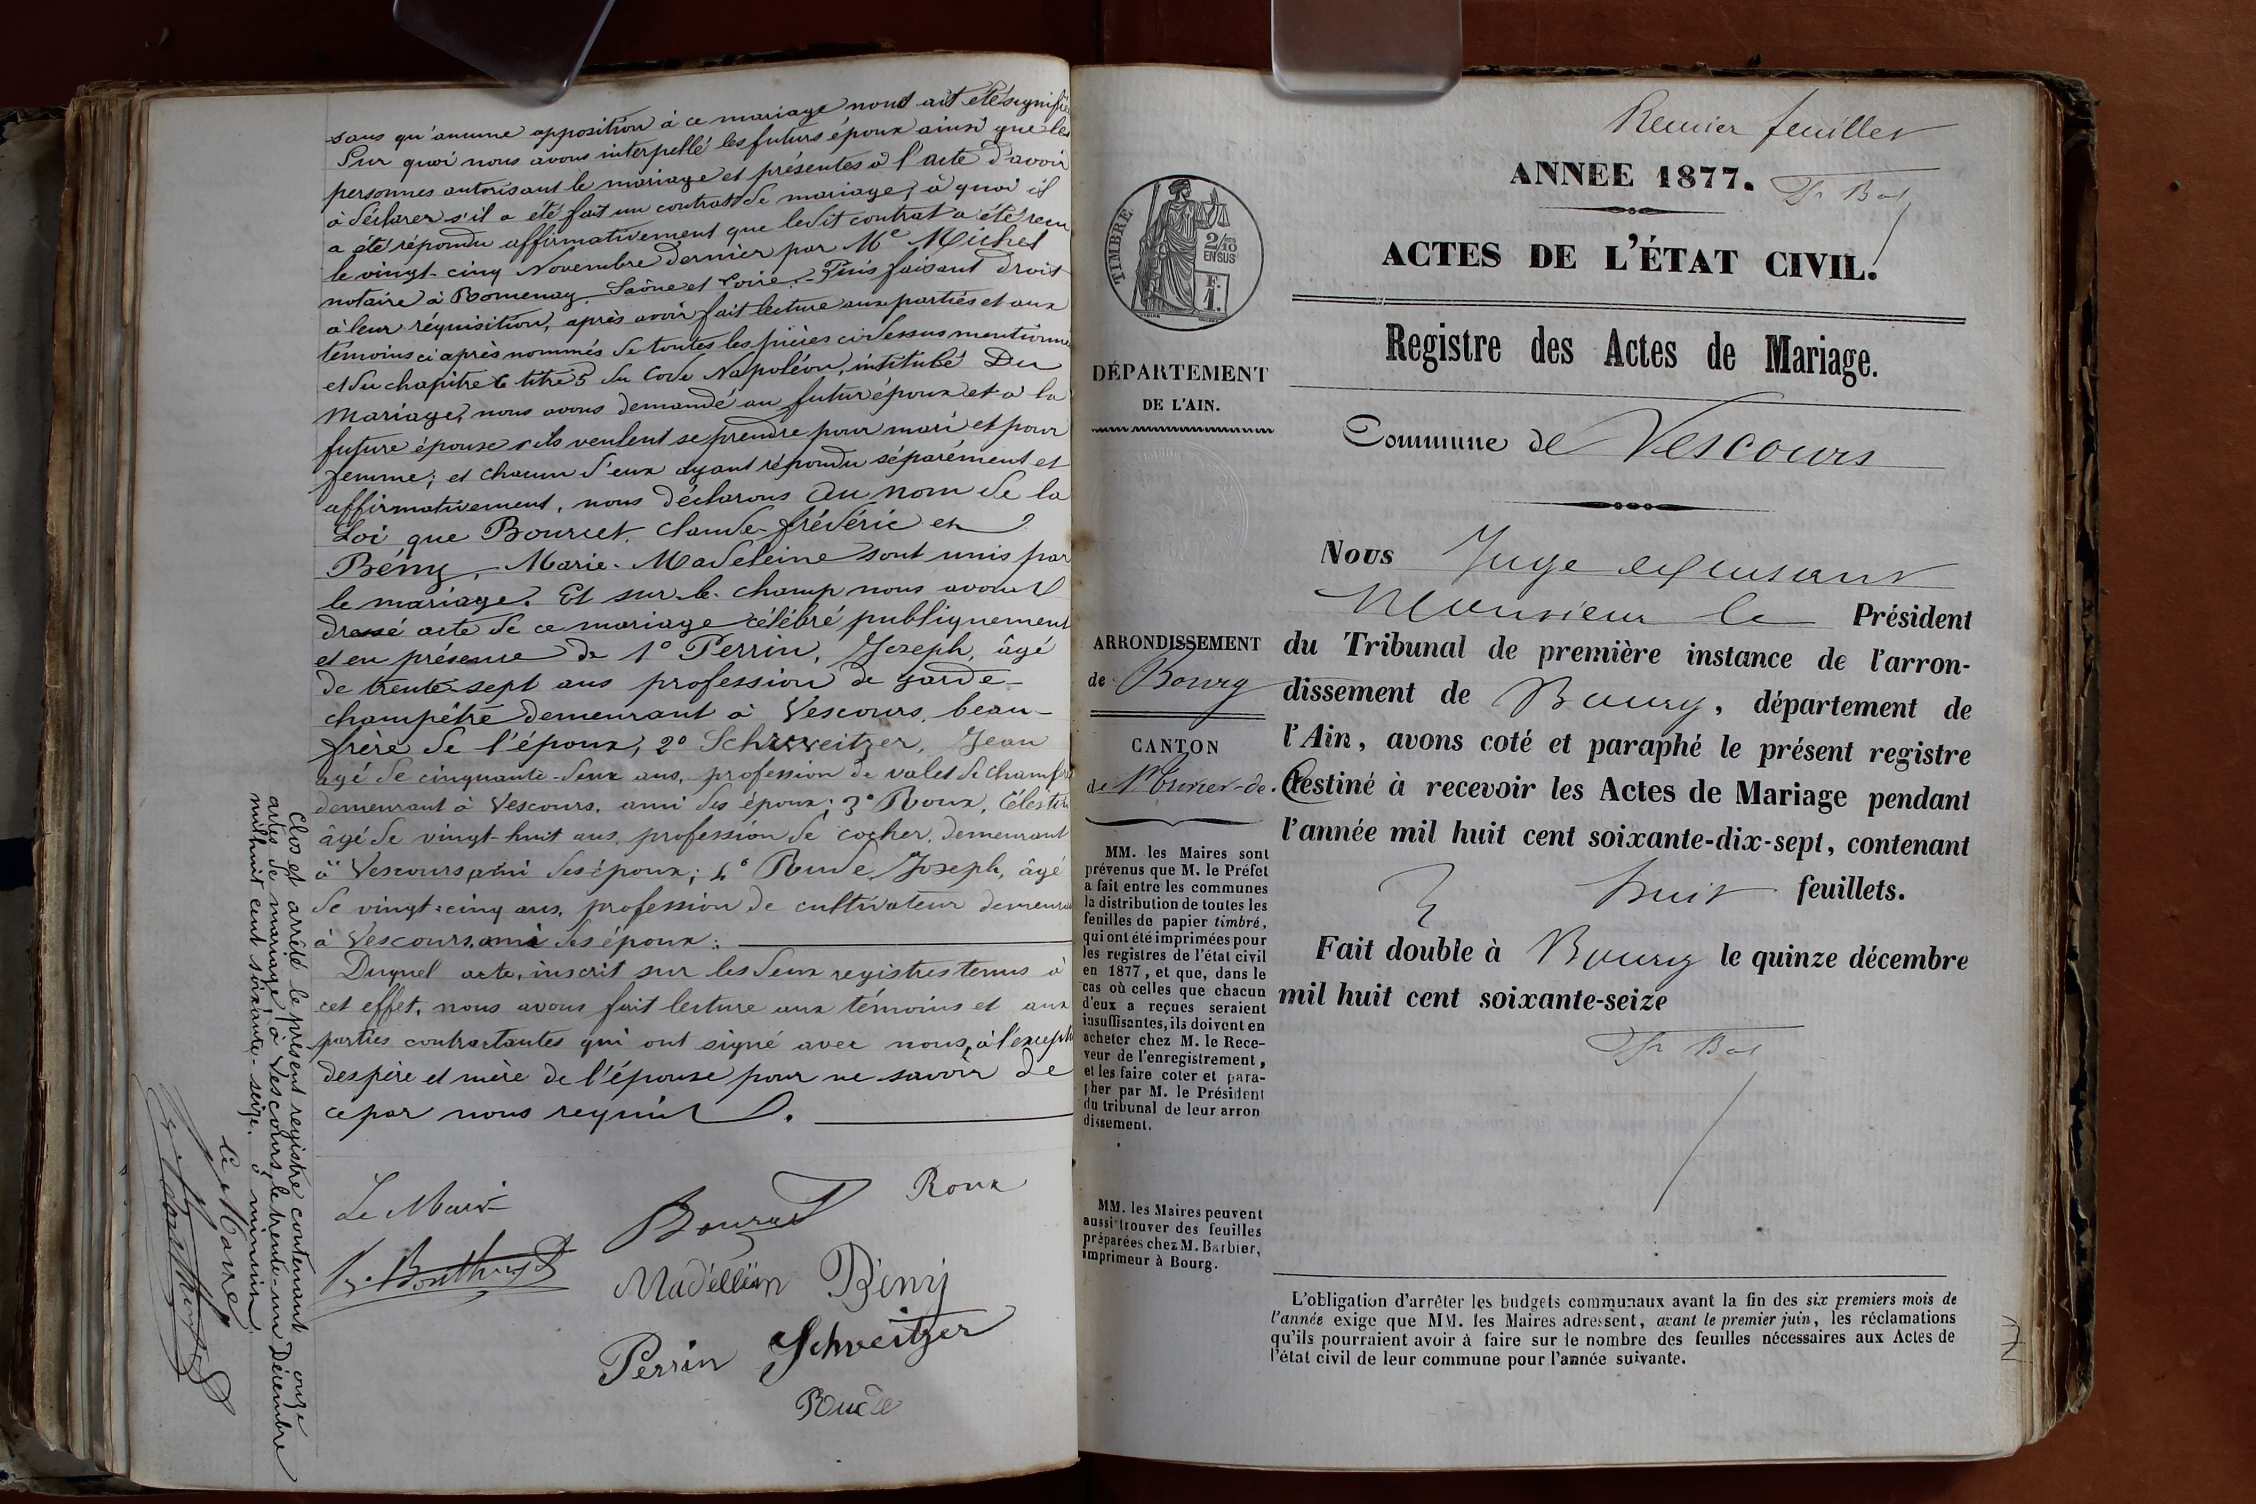 sans qu'aucune opposition à ce mariage nous ait été signifiée
Sur quoi nous avons interpellé les futurs époux ainsi que les
personnes autorisant le mariage et présentes à l'acte d'avoir
à déclarer s'il a été fait un contrat de mariage, à quoi il
a été répondu affirmativement que ledit contrat a été reçu
le vingt-cinq Novembre dernier par Me Michel
notaire à Romenay Saône et Loire. Puis faisant droit
à leur réquisition, après avoir fait lecture aux parties et aux
témoins ci après nommés de toutes les pièces ci dessus mentionnées
et du chapitre 6 titre 5 du Code Napoléon, intitulé Du
Mariage, nous avons demandé au futur époux et à la
future épouse s'ils veulent se prendre pour mari et pour
femme; et chacun d'eux ayant répondu séparément et
affirmativement, nous déclarons Au nom de la
Loi que Bourcet, Claude-frédéric et
Bémy, Marie-Madeleine sont unis par
le mariage. Et sur-le-champ nous avons
dressé acte de ce mariage célébré publiquement
et en présence de 1° Perrin, Joseph, âgé
de trente-sept ans profession de garde-
champêtre demeurant à Vescours, beau-
frère de l'époux; 2° Schweitzer, Jean
agé de cinquante-deux ans, profession de valet de chambre
demeurant à Vescours, ami des époux; 3° Roux, Célestin
âgé de vingt-huit ans, profession de cocher, demeurant
à Vescours, ami des époux; 4° Rude, Joseph, âgé
de vingt-cinq ans, profession de cultivateur demeurant
à Vescours, ami des époux.
Duquel acte, inscrit sur les deux registres tenus à
cet effet, nous avons fait lecture aux témoins et aux
parties contractantes qui ont signé avec nous, à l'exception
des père et mère de l'épouse pour ne savoir de
ce par nous requis.
Le Maire
Roux
Bourcet
Madéllin Bémy
Perrin Schweitzer
Rude
Clos et arrêté le présent registre contenant onze
actes de mariage, à Vescours, le trente-un Décembre
mil huit cent soixante-seize, à minuit.
le Maire
Premier feuillet
ANNÉE 1877.
ACTES DE L'ÉTAT CIVIL.
Registre des Actes de Mariage.
Commune de Vescours
TIMBRE
2/10
EN SUS
F.
1.
DÉPARTEMENT
DE L'AIN.
ARRONDISSEMENT
de Bourg
CANTON
MM. les Maires sont
prévenus que M. le Préfet
a fait entre les communes
la distribution de toutes les
feuilles de papier timbré,
qui ont été imprimées pour
les registres de l'état civil
en 1877, et que, dans le
cas où celles que chacun
d'eux a reçues seraient
insuffisantes, ils doivent en
acheter chez M. le Rece-
veur de l'enregistrement,
et les faire coter et para-
pher par M. le Président
du tribunal de leur arron
dissement.
MM. les Maires peuvent
aussi trouver des feuilles
préparées chez M. Barbier,
imprimeur à Bourg.
Nous Juge
Monsieur le Président
du Tribunal de première instance de l'arron-
dissement de Bourg, département de
l'Ain, avons coté et paraphé le présent registre
destiné à recevoir les Actes de Mariage pendant
l'année mil huit cent soixante-dix-sept, contenant
huit feuillets.
Fait double à Bourg le quinze décembre
mil huit cent soixante-seize
L'obligation d'arrêter les budgets communaux avant la fin des six premiers mois de
l'année exige que MM. les Maires adressent, avant le premier juin, les réclamations
qu'ils pourraient avoir à faire sur le nombre des feuilles nécessaires aux Actes de
l'état civil de leur commune pour l'année suivante.